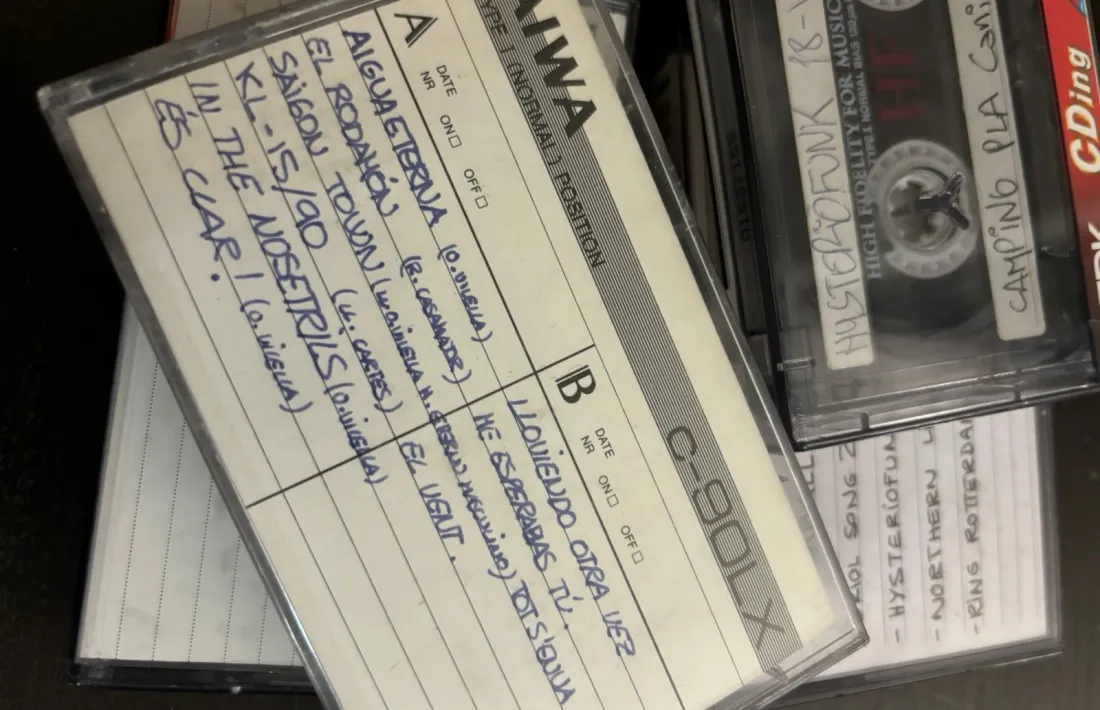 AIWA
TYPE I (NORMAL) POSITION
C-90LX
A
DATE
NR ON OFF
AIGUA ETERNA (O. VILELLA)
EL RODAMÓN (R. CASAMADE)
SAIGON TOWN (
KL-15/90 (K. CARTES)
IN THE NOSETRILS (O. VILELLA)
ÉS CLAR! (O. VILELLA)
B
DATE
NR ON OFF
LLOVIENDO OTRA VEZ
ME ESPERABAS TÚ.
TOT S'ENVA
EL VENT.
HYSTERIOFUNK 18-
HIGH FIDELITY FOR MUSIC
TYPE I NORMAL BIAS 120
CAMPING PLA
CDing
SONG 2
- HYSTERIOFUN
- NORTHERN L
- RING ROTTERDA